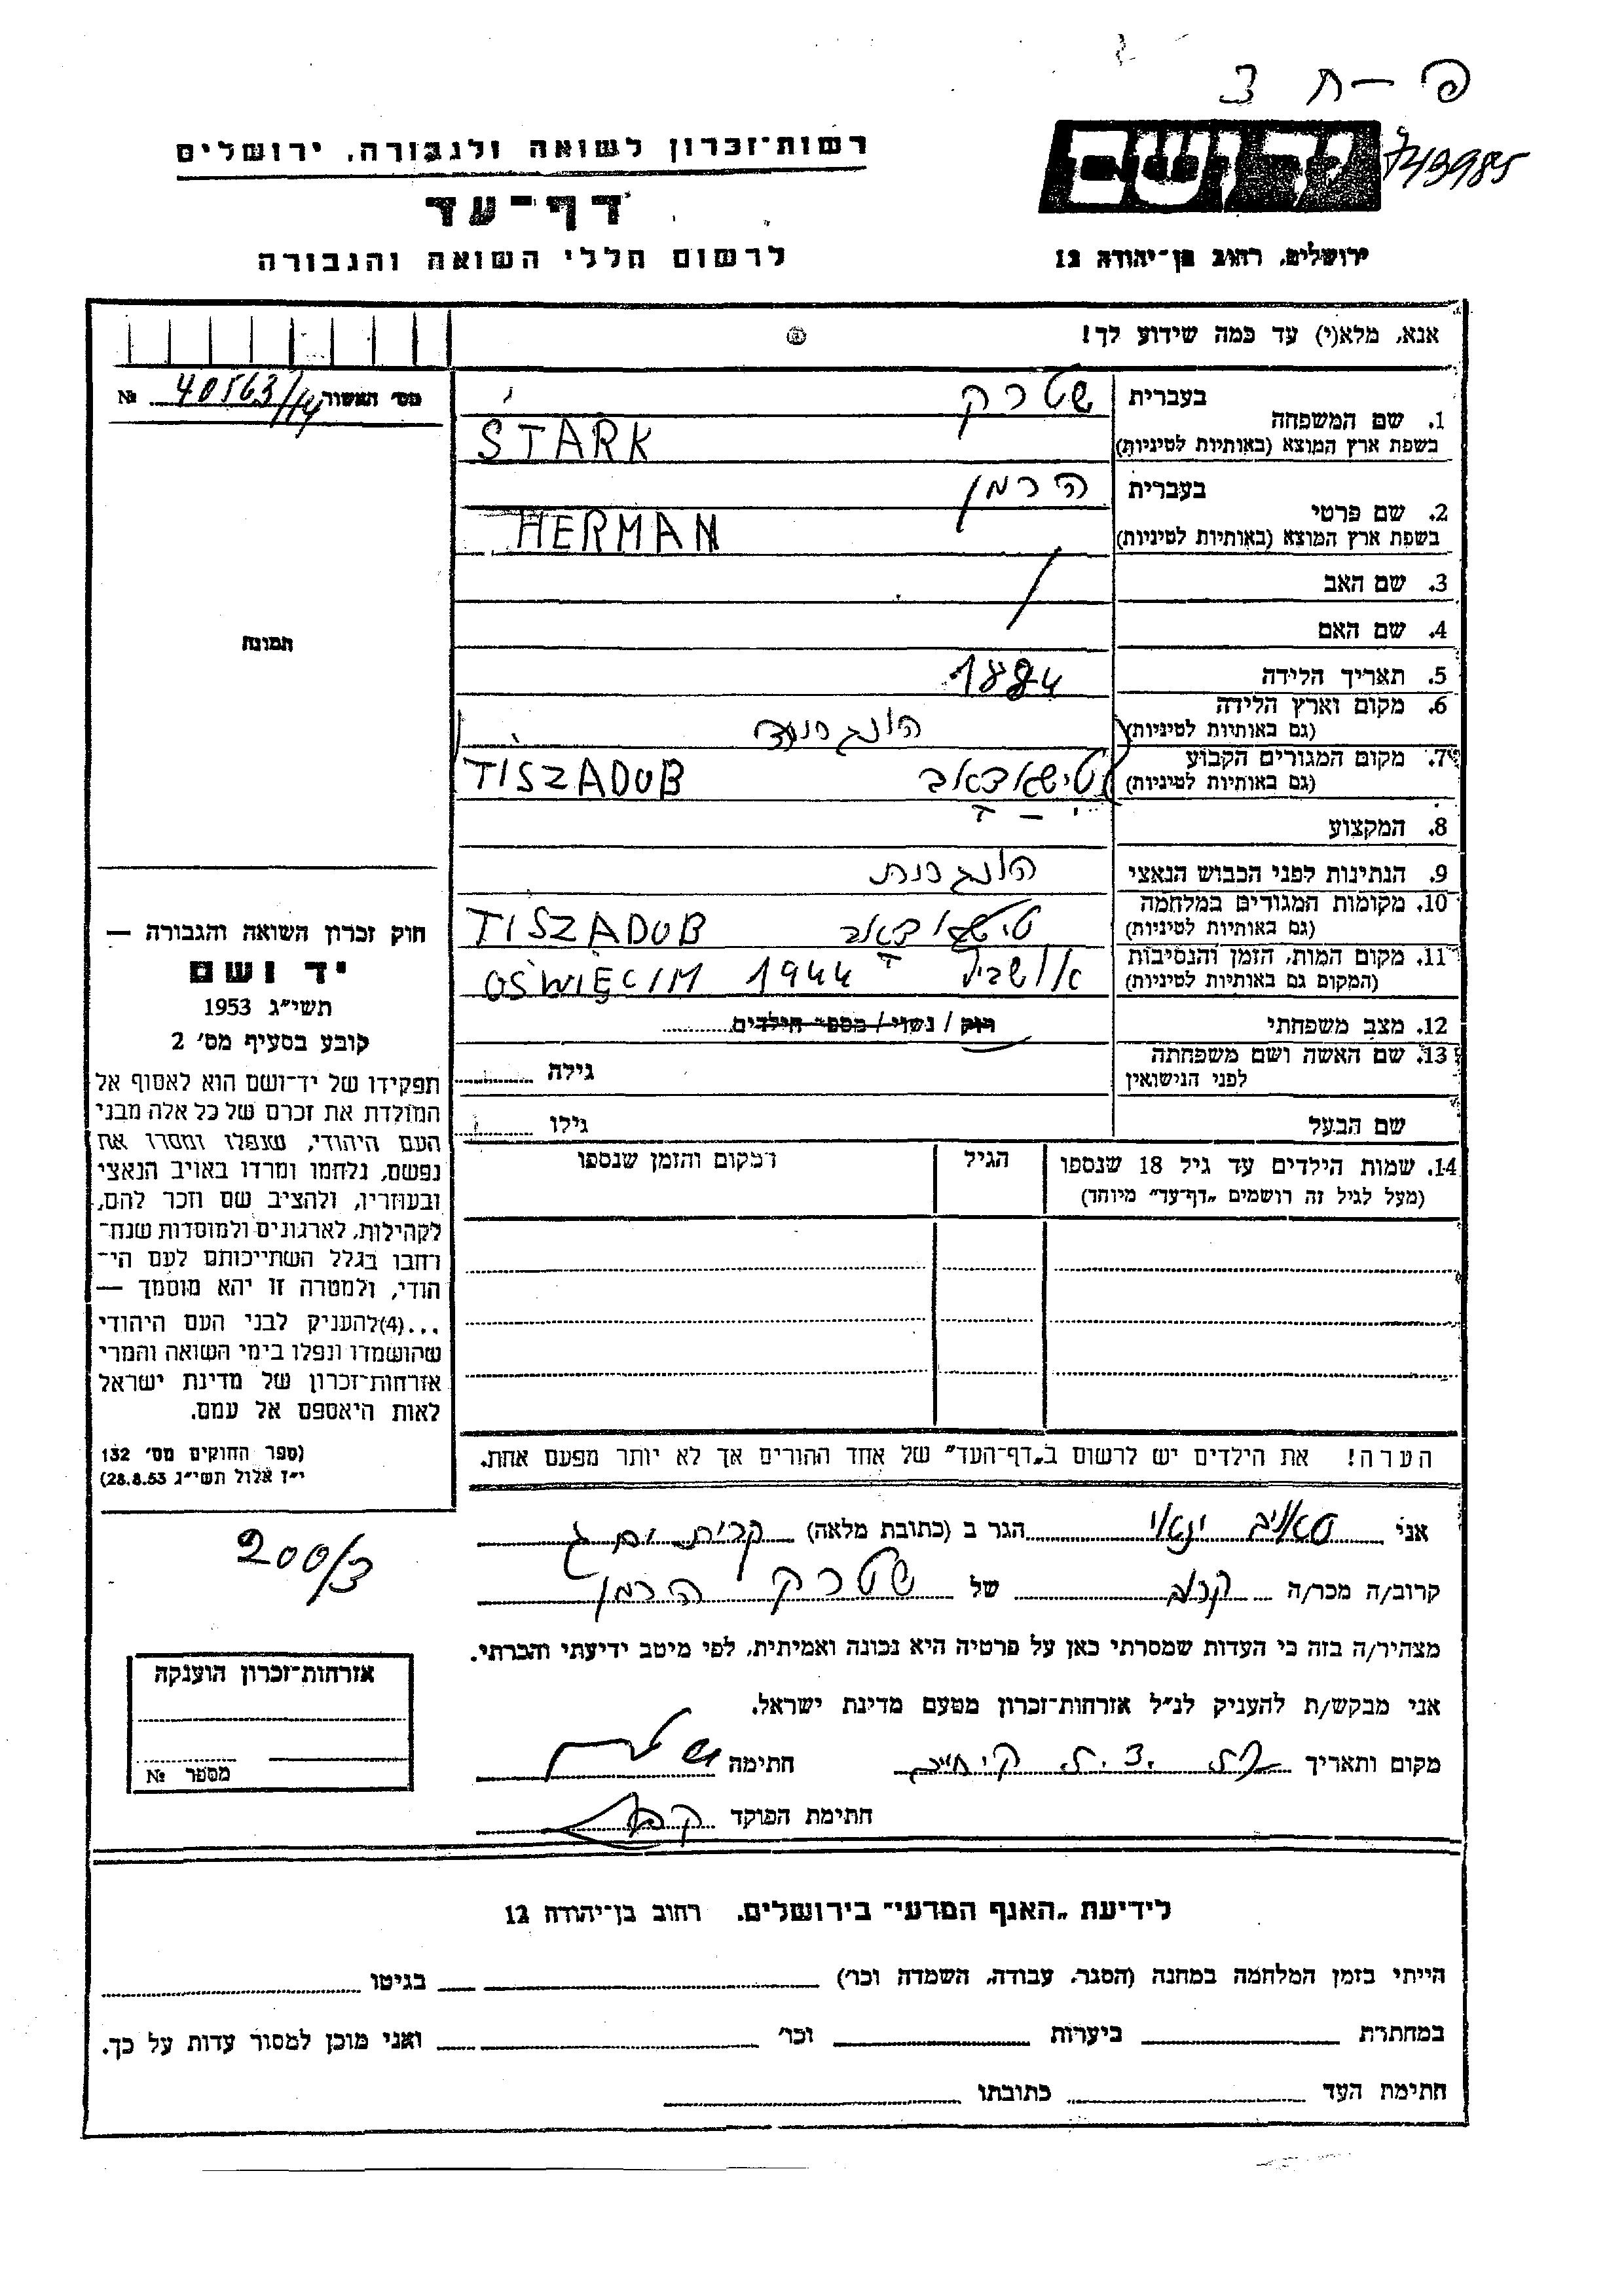 פ – ח 3
743985
רשות־זכרון לשואה ולגבורה, ירושלים
דף־עד
לרשום חללי השואה והגבורה
ירושלים, רחוב בן־יהודה 12
אנא, מלא(י) עד כמה שידוע לך!
מס׳ האשור 40563/14 №
בעברית שטרק
1. שם המשפחה
בשפת ארץ המוצא (באותיות לטיניות) STARK
בעברית הרמן
2. שם פרטי
בשפת ארץ המוצא (באותיות לטיניות) HERMAN
3. שם האב
4. שם האם
תמונה
5. תאריך הלידה 1884
6. מקום וארץ הלידה
(גם באותיות לטיניות)
7. מקום המגורים הקבוע
(גם באותיות לטיניות) TISZADOB
8. המקצוע
9. הנתינות לפני הכבוש הנאצי הונגרית
10. מקומות המגורים במלחמה
(גם באותיות לטיניות) TISZADOB
11. מקום המות, הזמן והנסיבות
(המקום גם באותיות לטיניות) OŚWIĘCIM 1944
12. מצב משפחתי רוק / נשוי / מספר הילדים
13. שם האשה ושם משפחתה גילה
לפני הנישואין
שם הבעל גילו
14. שמות הילדים עד גיל 18 שנספו הגיל המקום והזמן שנספו
(מעל לגיל זה רושמים „דף־עד״ מיוחד)
חוק זכרון השואה והגבורה —
יד ושם
תשי״ג 1953
קובע בסעיף מס׳ 2
תפקידו של יד־ושם הוא לאסוף אל
המולדת את זכרם של כל אלה מבני
העם היהודי, שנפלו ומסרו את
נפשם, נלחמו ומרדו באויב הנאצי
ובעוזריו, ולהציב שם וזכר להם,
לקהילות, לארגונים ולמוסדות שנח־
רחבו בגלל השתייכותם לעם הי־
הודי, ולמטרה זו יהא מוסמך —
...(4)להעניק לבני העם היהודי
שהושמדו ונפלו בימי השואה והמרי
אזרחות־זכרון של מדינת ישראל
לאות היאספם אל עמם.
(ספר החוקים מס׳ 132
י״ז אלול תשי״ג 28.8.53)
הערה! את הילדים יש לרשום ב„דף־העד״ של אחד ההורים אך לא יותר מפעם אחת.
אני הגר ב (כתובת מלאה) קרית
200/3
קרוב/ה מכר/ה קרוב של שטרק הרמן
מצהיר/ה בזה כי העדות שמסרתי כאן על פרטיה היא נכונה ואמיתית, לפי מיטב ידיעתי והכרתי.
אני מבקש/ת להעניק לנ״ל אזרחות־זכרון מטעם מדינת ישראל.
מקום ותאריך חתימה
חתימת הפוקד
אזרחות־זכרון הוענקה
מספר №
לידיעת „האגף המדעי״ בירושלים, רחוב בן־יהודה 12
הייתי בזמן המלחמה במחנה (הסגר, עבודה, השמדה וכו׳) בגיטו
במחתרת ביערות וכו׳ ואני מוכן למסור עדות על כך.
חתימת העד כתובתו